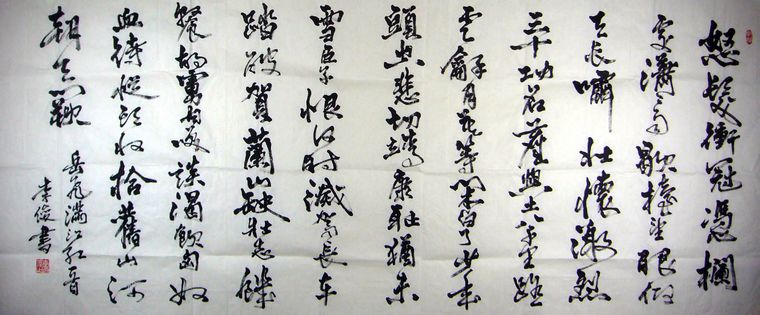 怒髮衝冠憑欄
處瀟瀟雨歇擡望眼仰
天長嘯壯懷激烈
三十功名塵與土八千里路
雲龢月莫等閒白了少年
頭空悲切靖康恥猶未
雪臣子恨何時滅駕長車
踏破賀蘭山缺壯志饑
餐胡虜肉笑談渴飲匈奴
血待從頭收拾舊山河
朝天闕
岳飛滿江紅
李俊書